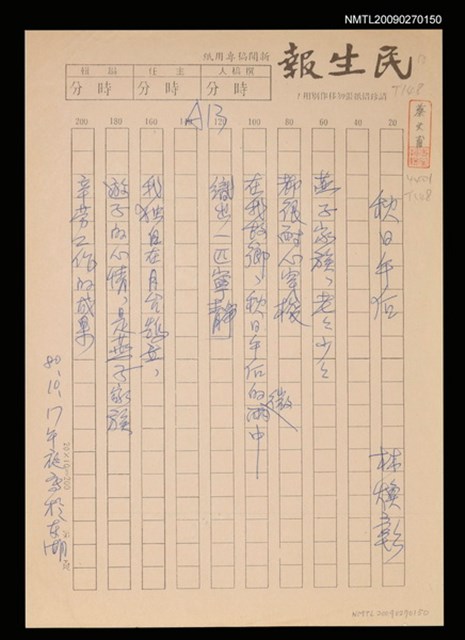 NMTL20090270150
民生報
新聞稿專用紙
請珍惜紙張勿移作別用！
撰稿人
時 分
主任
時 分
編輯
時 分
A13
T108
T108
20
40
60
80
100
120
140
160
180
200
秋日午后
林煥彰
燕子家族，老老少少
都很耐心穿梭
在我故鄉，秋日午后的微雨中
織出一匹寧靜
我獨自在月台散步，
遊子的心情，是燕子家族
辛勞工作的成果，
80、10、17午
20×10=200
NMTL20090270150